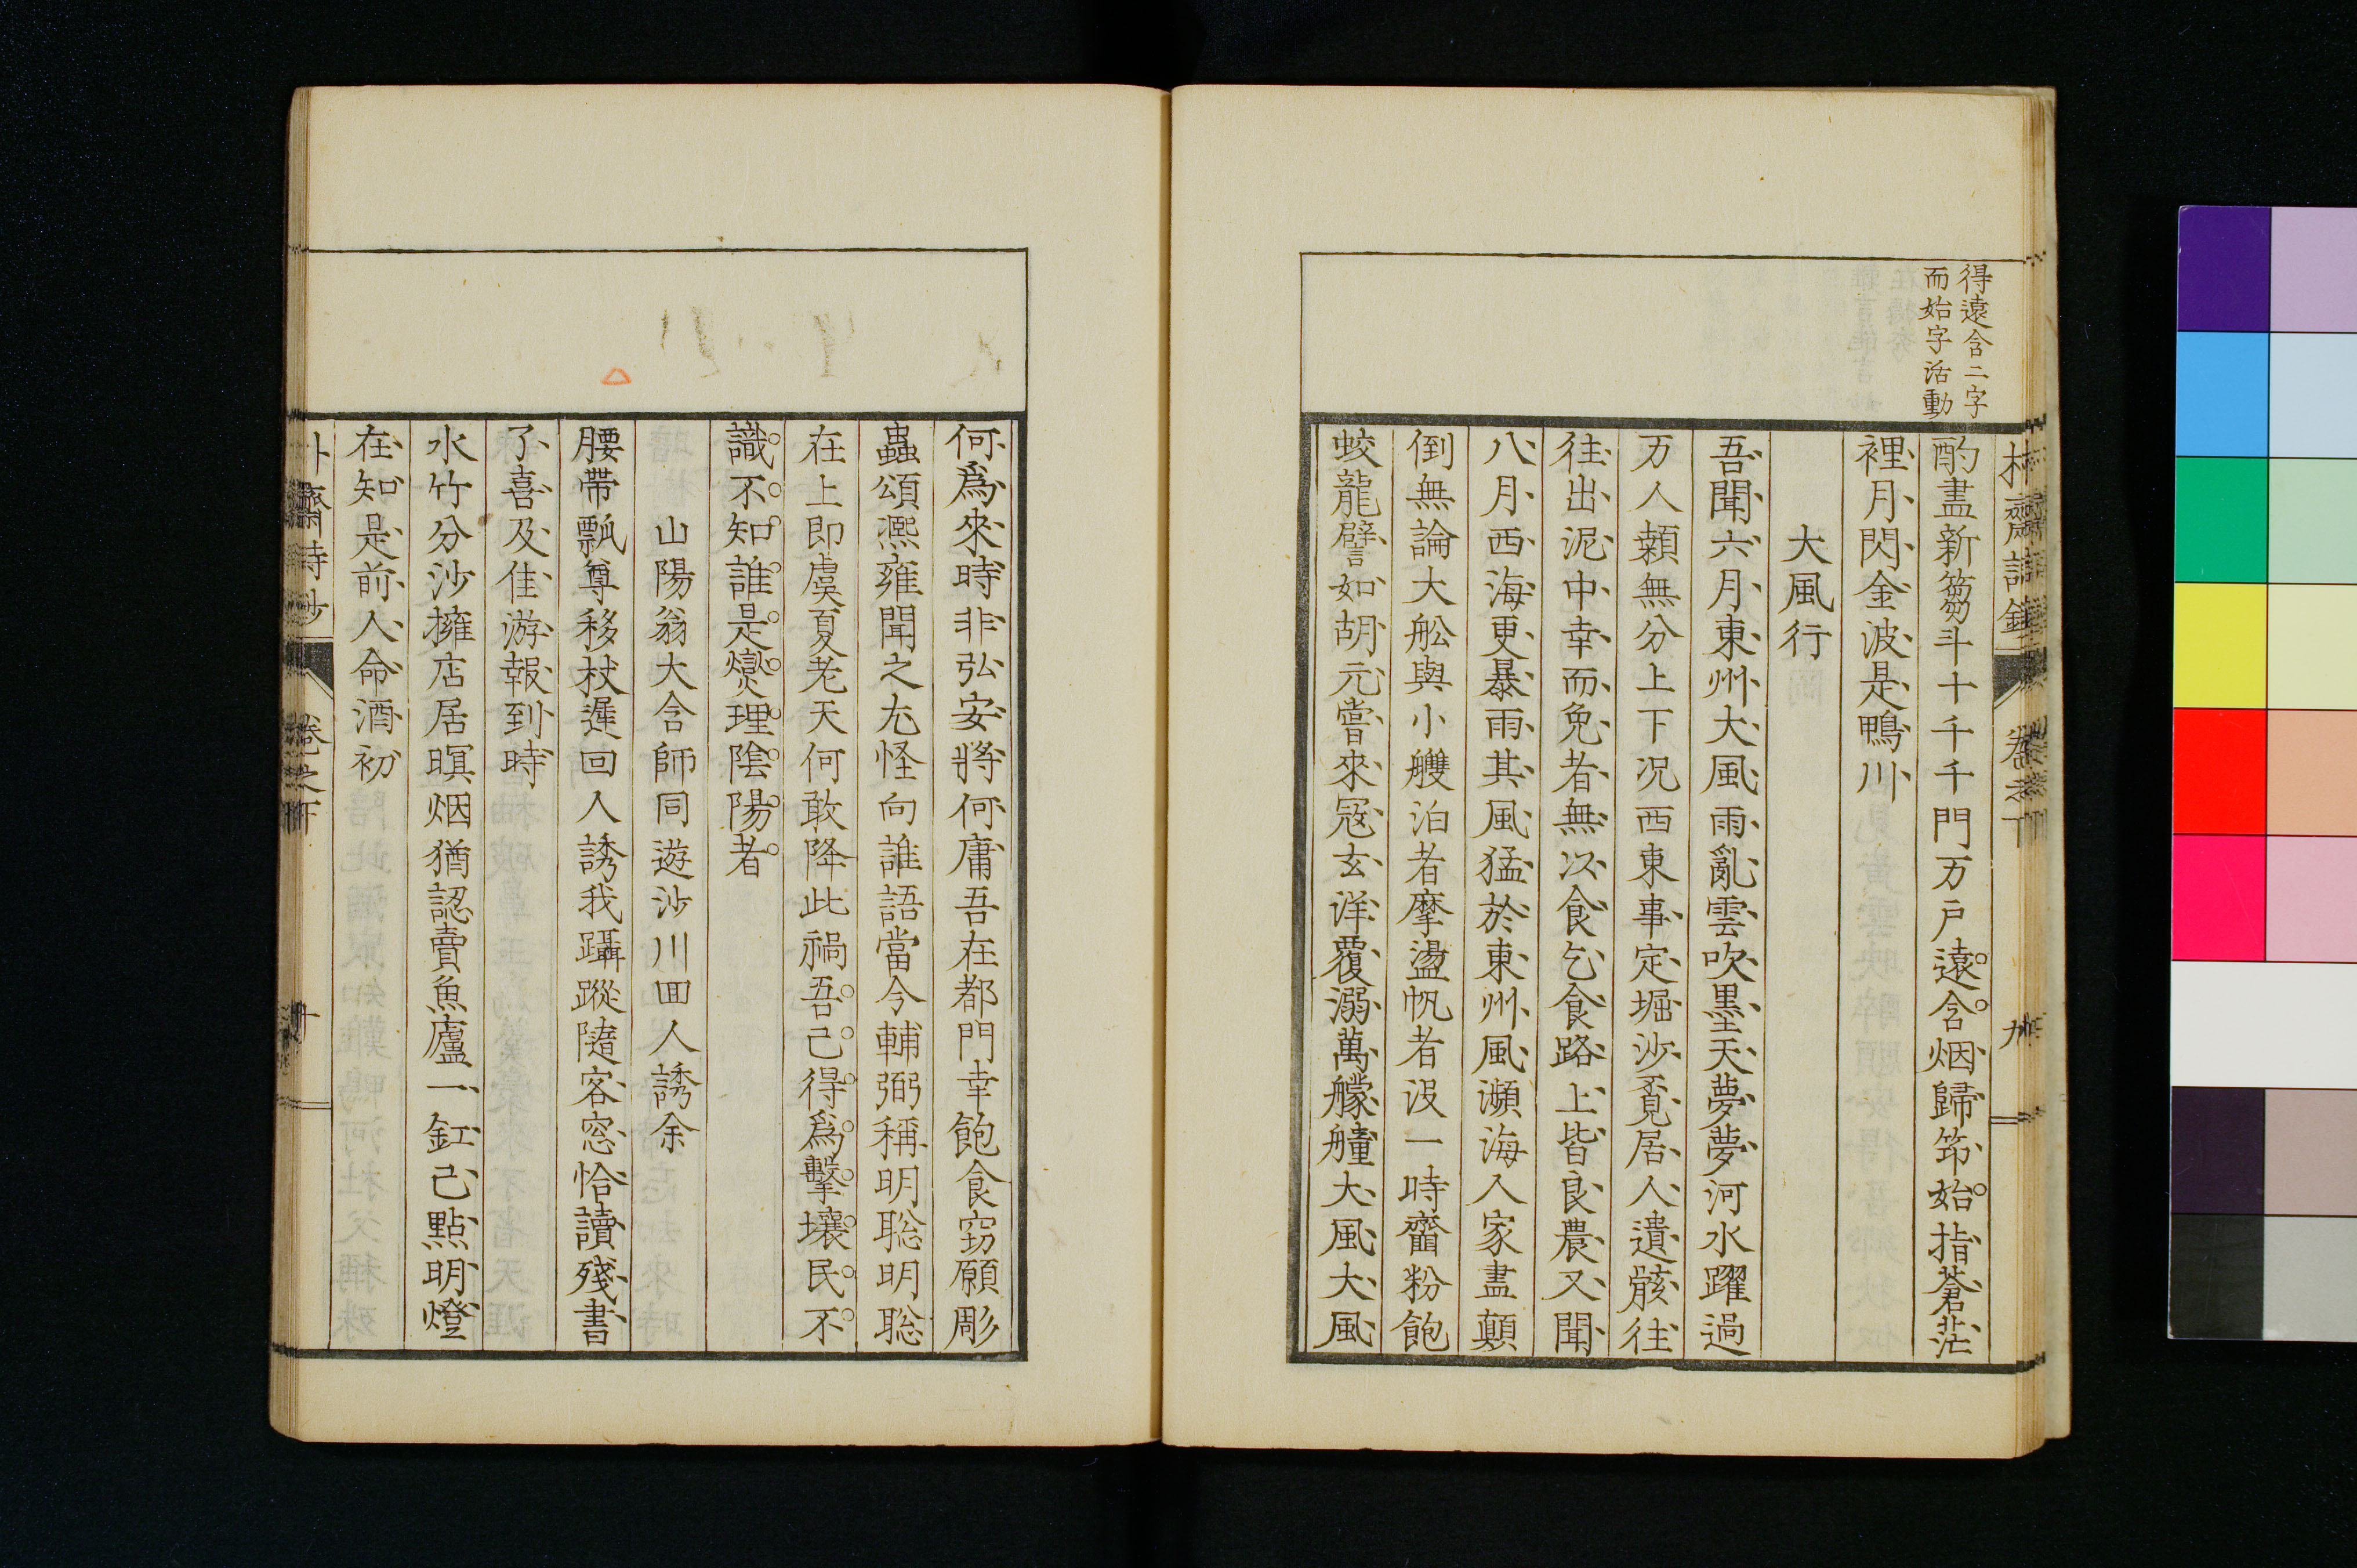 得遠含二字
而始字活動
酌盡新蒭斗十千千門万戸遠含烟歸笻始指蒼茫
裡月閃金波是鴨川
大風行
吾聞六月東州大風雨亂雲吹墨天夢夢河水躍過
万人頼無分上下况西東事定堀沙覔居人遺骸往
往出泥中幸而免者無以食乞食路上皆良農又聞
八月西海更暴雨其風猛於東州風瀕海人家盡顛
倒無論大舩與小艭泊者摩盪帆者没一時齏粉飽
蛟龍譬如胡元嘗來冦玄洋覆溺萬艨艟大風大風
卷之下
九
何爲來時非弘安將何庸吾在都門幸飽食窃願彫
蟲頌熈雍聞之尢怪向誰語當今輔弼稱明聡明聡
在上即虞夏老天何敢降此禍吾已得爲擊壤民不
識不知誰是爕理陰陽者
山陽翁大含師同遊沙川囬人誘余
腰帶瓢尊移杖遲回人誘我躡蹤隨客窓恰讀殘書
了喜及佳游報到時
水竹分沙擁店居暝烟猶認賣魚廬一釭已點明燈
在知是前人命酒初
齋詩鈔
卷之下
十